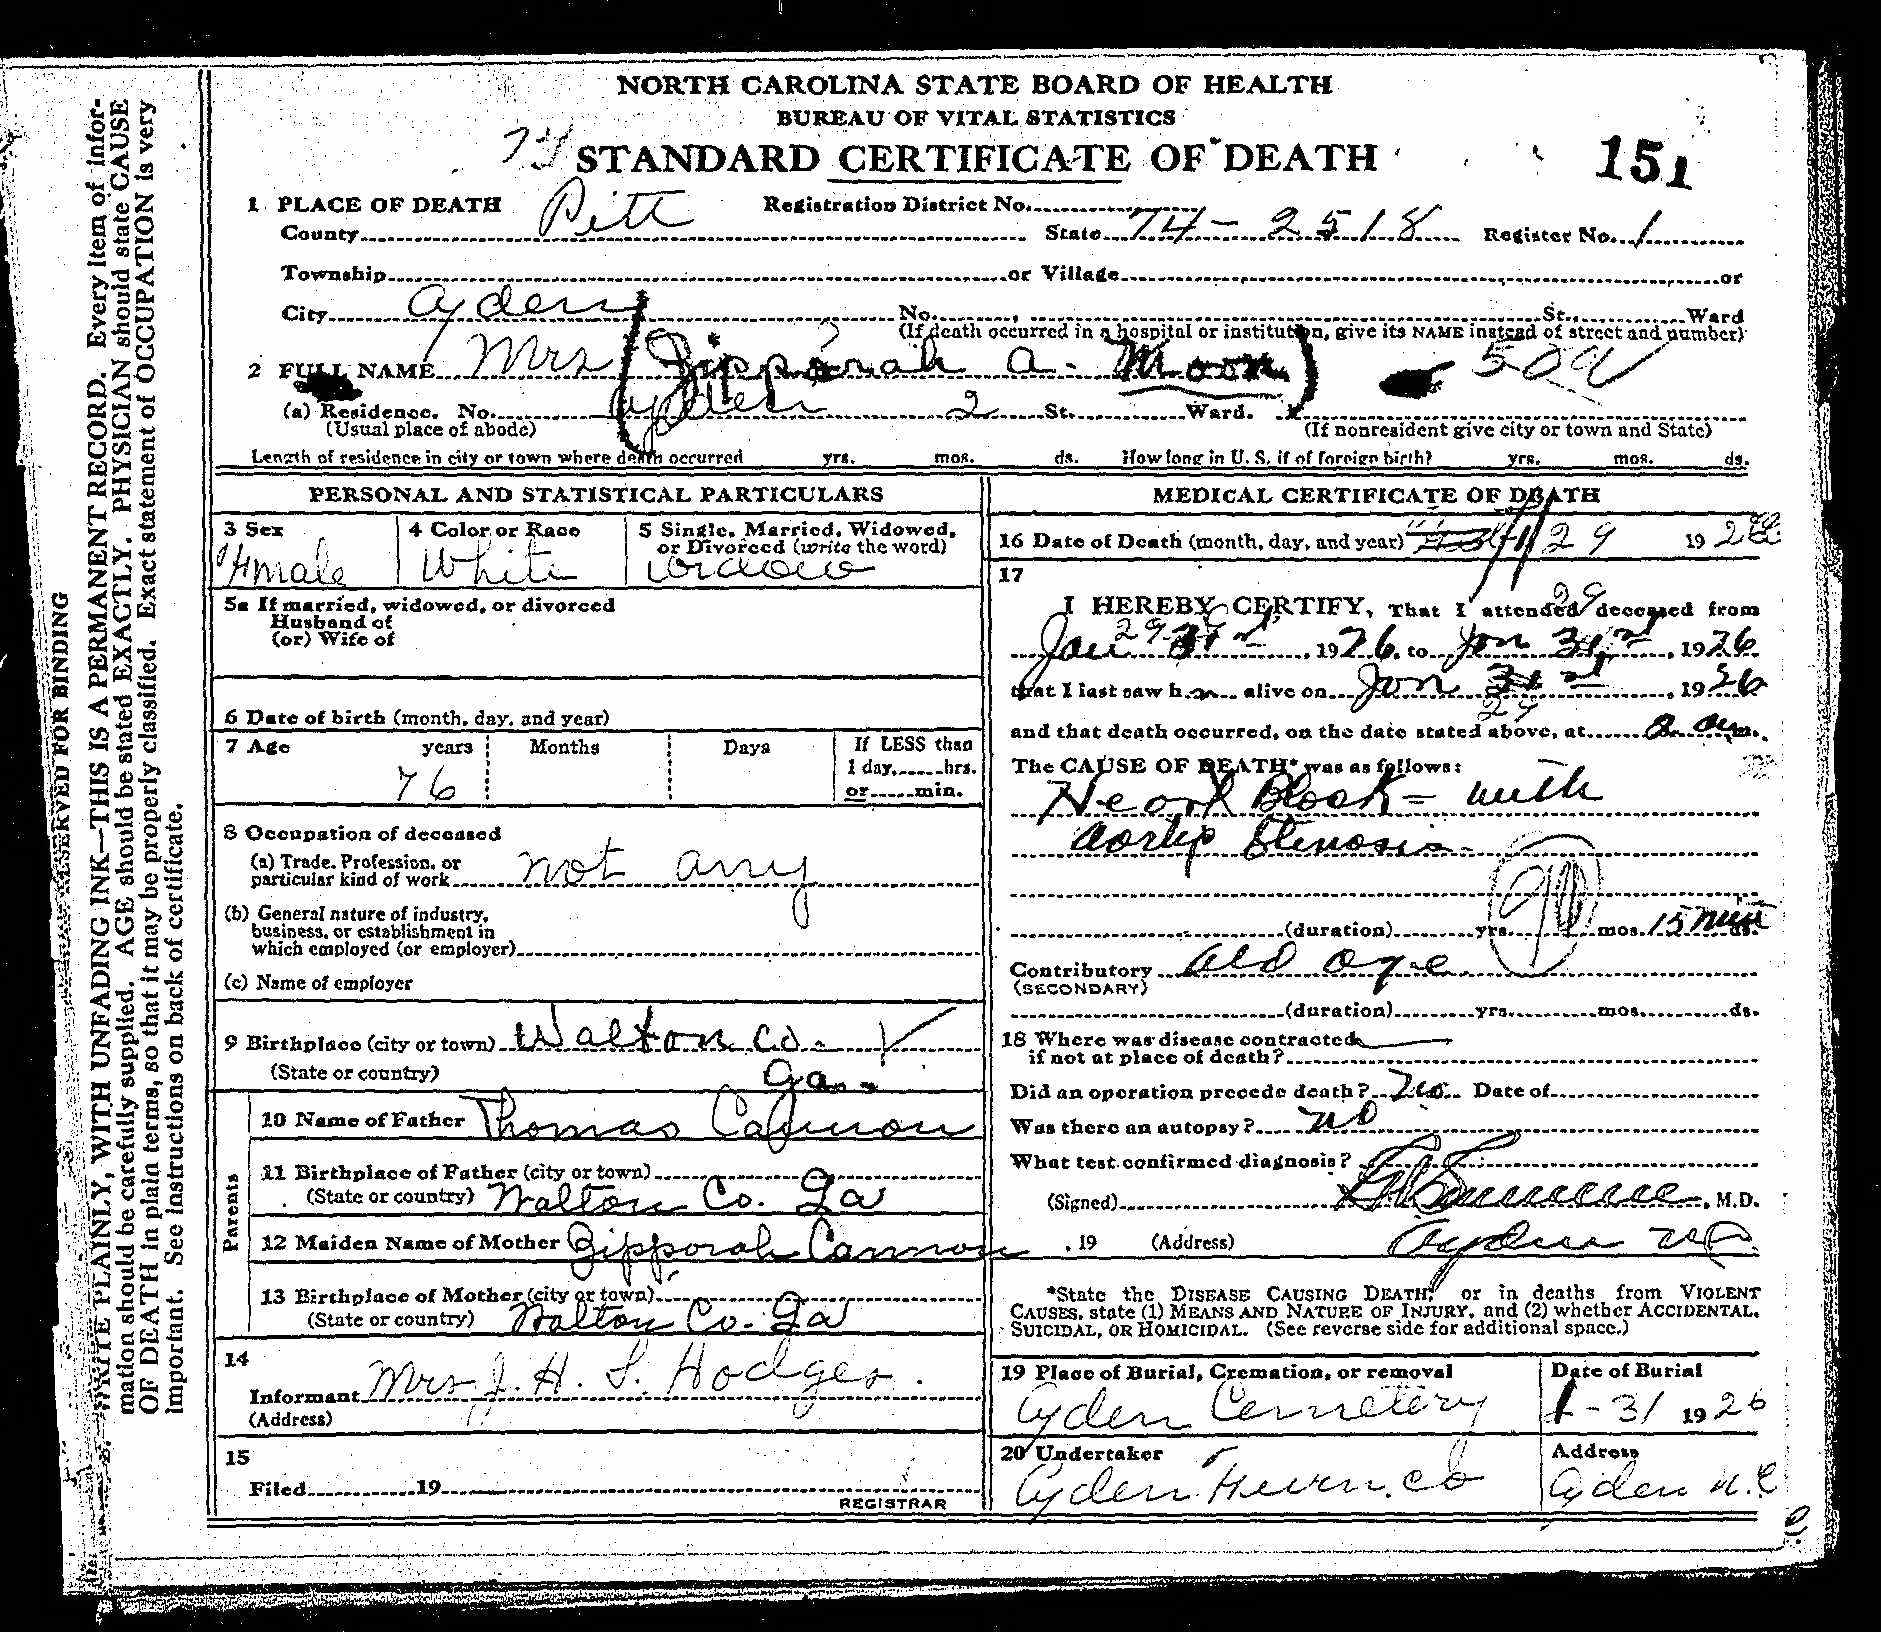 NORTH CAROLINA STATE BOARD OF HEALTH
BUREAU OF VITAL STATISTICS
74 STANDARD CERTIFICATE OF DEATH 151
1 PLACE OF DEATH Registration District No.
County Pitt State 74-2518 Register No. 1
Township or Village or
City Ayden No. St., Ward
(If death occurred in a hospital or institution, give its NAME instead of street and number)
2 FULL NAME Mrs (Zipporah A. Moon) 509
(a) Residence. No. Ayden 2 St. Ward.
(Usual place of abode) (If nonresident give city or town and State)
Length of residence in city or town where death occurred yrs. mos. ds. How long in U. S. if of foreign birth? yrs. mos. ds.
PERSONAL AND STATISTICAL PARTICULARS
3 Sex 4 Color or Race 5 Single, Married, Widowed,
or Divorced (write the word)
Female White Widow
5a If married, widowed, or divorced
Husband of
(or) Wife of
6 Date of birth (month, day, and year)
7 Age years Months Days If LESS than
1 day, hrs.
76 or min.
8 Occupation of deceased
(a) Trade, Profession, or
particular kind of work not any
(b) General nature of industry,
business, or establishment in
which employed (or employer)
(c) Name of employer
9 Birthplace (city or town) Walton Co.
(State or country) Ga.
Parents
10 Name of Father Thomas Cannon
11 Birthplace of Father (city or town)
(State or country) Walton Co. Ga
12 Maiden Name of Mother Zipporah Cannon
13 Birthplace of Mother (city or town)
(State or country) Walton Co. Ga
14
Informant Mrs. J. H. S. Hodges.
(Address)
15
Filed 19
REGISTRAR
MEDICAL CERTIFICATE OF DEATH
16 Date of Death (month, day, and year) 29 1926
17
I HEREBY CERTIFY, That I attended deceased from
29 29
Jan 31st, 1926, to Jan 31st, 1926
that I last saw h alive on Jan 31st, 1926
29
and that death occurred, on the date stated above, at m.
The CAUSE OF DEATH* was as follows:
Heart Block - with
Aortic Stenosis
90
(duration) yrs. mos. 15 min ds.
Contributory Old age
(SECONDARY)
(duration) yrs. mos. ds.
18 Where was disease contracted
if not at place of death?
Did an operation precede death? No Date of
Was there an autopsy? no
What test confirmed diagnosis?
(Signed) , M.D.
, 19 (Address) Ayden NC
*State the DISEASE CAUSING DEATH, or in deaths from VIOLENT
CAUSES, state (1) MEANS AND NATURE OF INJURY, and (2) whether ACCIDENTAL,
SUICIDAL, OR HOMICIDAL. (See reverse side for additional space.)
19 Place of Burial, Cremation, or removal Date of Burial
Ayden Cemetery 1-31 1926
20 Undertaker Address
Ayden Furn. Co Ayden N.C
RESERVED FOR BINDING
WRITE PLAINLY, WITH UNFADING INK—THIS IS A PERMANENT RECORD. Every item of infor-
mation should be carefully supplied. AGE should be stated EXACTLY. PHYSICIAN should state CAUSE
OF DEATH in plain terms, so that it may be properly classified. Exact statement of OCCUPATION is very
important. See instructions on back of certificate.